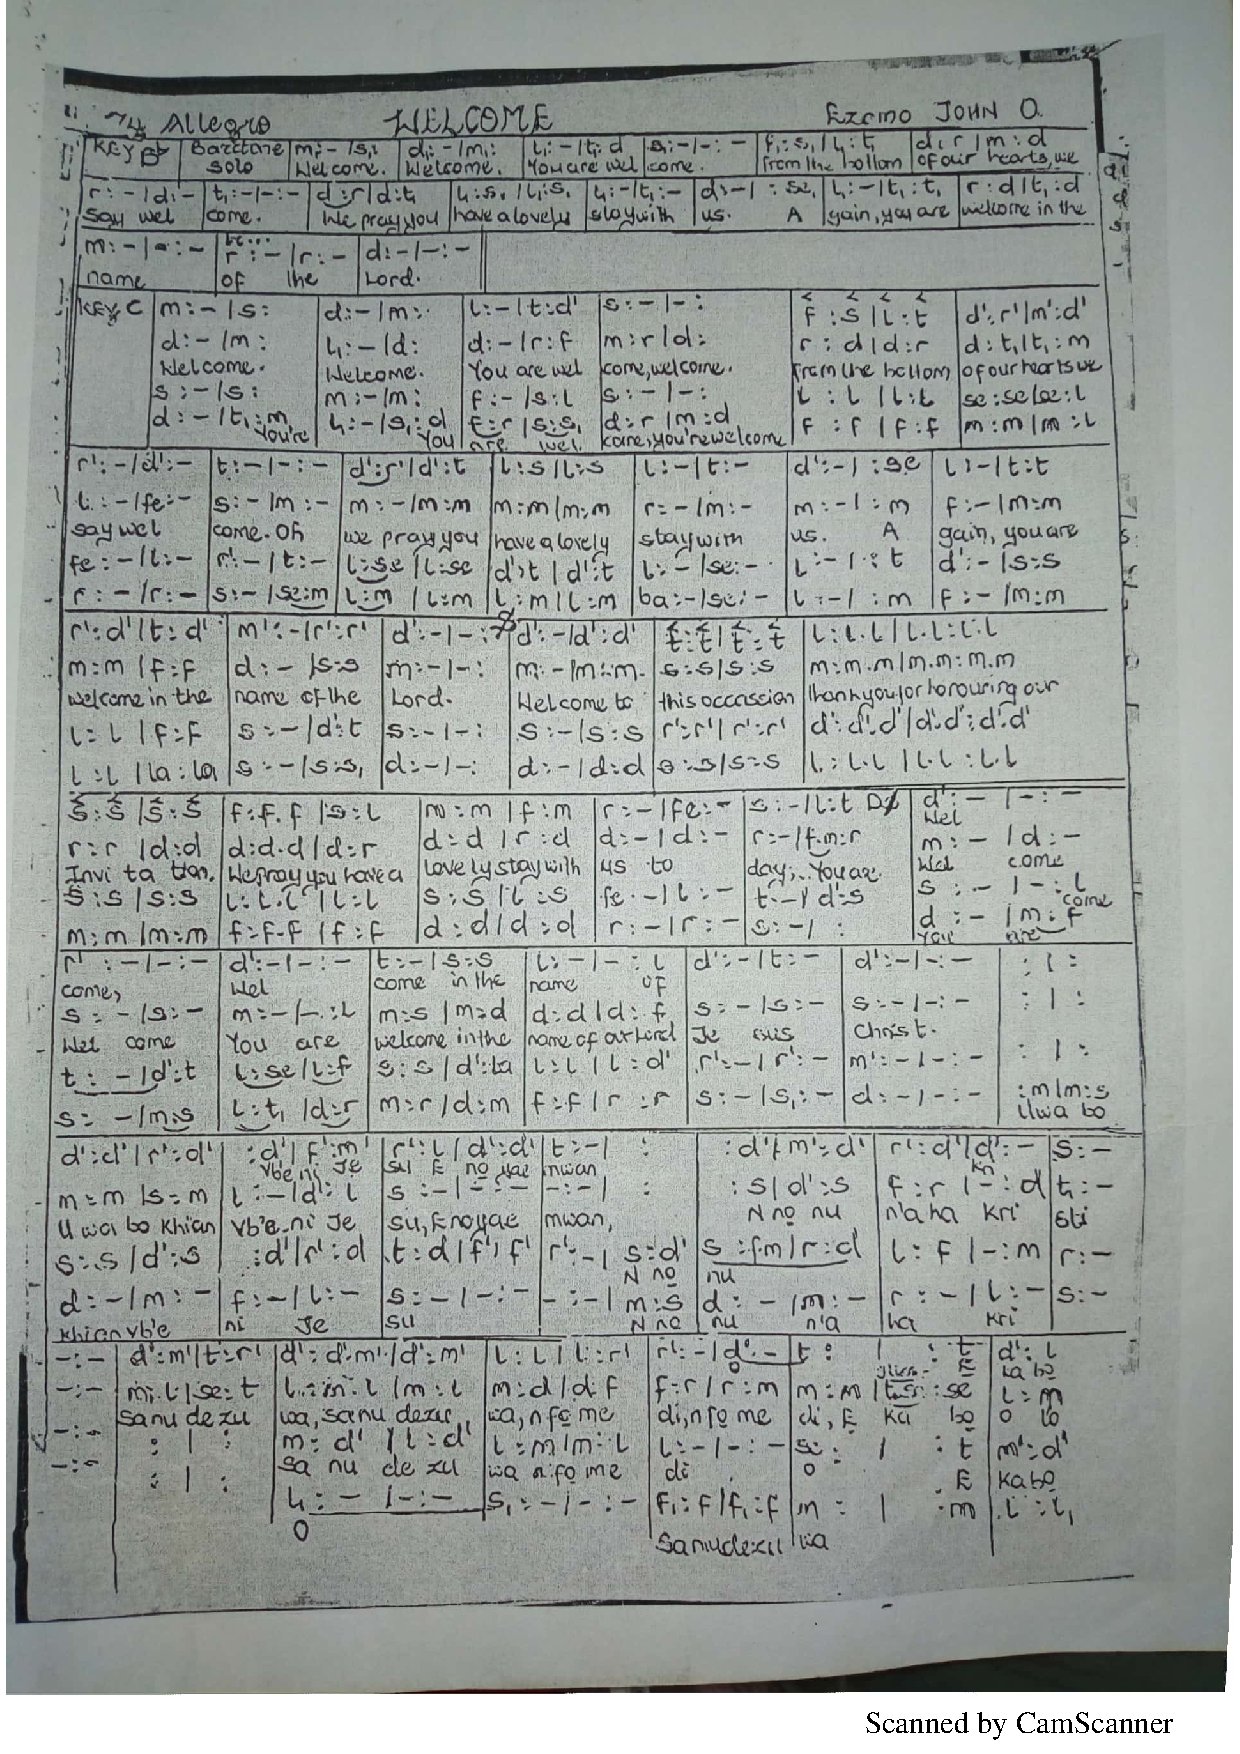 Allegro WELCOME Ezomo JOHN O.
KEY Baritone m:- /s,: d:- /m,: l,:- /t,:d s,:-/-:- f,:s,/l,:t, d:r/m:d
Solo Welcome. Welcome. You are wel come. from the bottom of our hearts, we
r:-/d:- t,:-/-:- d:r/d:t, l,:s,/l,:s, l,:-/t,:- d:-/ :se, l,:-/t,:t, r:d/t,:d
say wel come. We pray you have a lovely stay with us. A gain, you are welcome in the
m:-/-:- r:-/r:- d:-/-:-
name of the Lord.
KEY C m:-/s: d:-/m: l:-/t:d' s:-/-: f:s/l:t d':r'/m':d'
d:-/m: l,:-/d: d:-/r:f m:r/d: r:d/d:r d:t,/t,:m
Welcome. Welcome. You are wel come, welcome. from the bottom of our hearts we
s:-/s: m:-/m: f:-/s:l s:-/-: l:l/l:t se:se/se:l
d:-/t,:m, l,:-/s,:d f:r/s:s, d:r/m:d f:f/f:f m:m/m:l
You're You are wel come, you're welcome
r':-/d':- t:-/-:- d':r'/d':t l:s/l:s l:-/t:- d':-/ :se l:-/t:t
l:-/fe:- s:-/m:- m:-/m:m m:m/m:m r:-/m:- m:-/ :m f:-/m:m
say wel come. Oh we pray you have a lovely stay with us. A gain, you are
fe:-/l:- r':-/t:- l:se/l:se d':t/d':t l:-/se:- l:-/ :t d':-/s:s
r:-/r:- s:-/se:m l:m/l:m l:m/l:m ba:-/se:- l:-/ :m f:-/m:m
r':d'/t:d' m':-/r':r' d':-/-: d':-/d':d' t:t/t:t l:l.l/l.l:l.l
m:m/f:f d:-/s:s m:-/-: m:-/m:m s:s/s:s m:m.m/m.m:m.m
welcome in the name of the Lord. Welcome to this occassion thank you for honouring our
l:l/f:f s:-/d':t s:-/-: s:-/s:s r':r'/r':r' d':d'.d'/d'.d':d'.d'
l:l/la:la s:-/s:s, d:-/-: d:-/d:d s:s/s:s l:l.l/l.l:l.l
s:s/s:s f:f.f/s:l m:m/f:m r:-/fe:- s:-/l:t d':-/-:-
Wel
r:r/d:d d:d.d/d:r d:d/r:d d:-/d:- r:-/f.m:r m:-/d:-
Invi ta tion. We pray you have a lovely stay with us to day;. You are Wel come
s:s/s:s l:l.l/l:l s:s/l:s fe:-/l:- t:-/d':s s:-/-:l
come
m:m/m:m f:f.f/f:f d:d/d:d r:-/r:- s:-/ : d:-/m:f
You are
r':-/-:- d':-/-:- t:-/s:s l:-/-:l d':-/t:- d':-/-:- : / :
come, Wel come in the name of
s:-/s:- m:-/-:l m:s/m:d d:d/d:f s:-/s:- s:-/-:- : / :
Wel come You are welcome in the name of our Lord Je sus Christ.
t:-/d':t l:se/l:f s:s/d':ta l:l/l:d' r':-/r':- m':-/-:- : / :
s:-/m:s l:t,/d:r m:r/d:m f:f/r:r s:-/s,:- d:-/-:- :m/m:s
Uwa bo
d':d'/r':d' :d'/f':m' r':l/d':d' t:-/ : :d'/m':d' r':d'/d':- s:-
vbe ni Je su E no yae mwan kri
m:m/s:m l:-/d':l s:-/-:- -:-/ : :s/d':s f:r/-:d t,:-
U wa bo khian vb'e ni Je su, E no yae mwan, N no nu n'a ha kri sti
s:s/d':s :d'/r':d t:d/f':f' r':-/s:d' s:f.m/r:d l:f/-:m r:-
N no nu
d:-/m:- f:-/l:- s:-/-:- -:-/m:s d:-/m:- r:-/l:- s:-
khian vb'e ni Je su N no nu n'a ha kri
-:- d':m'/t:r' d':d'.m'/d':m' l:l/l:r' r':-/d':- t: / :t d':l
O E ka bo
-:- m:l/se:t m:d/d:f f:r/r:m m:m :se l:m
sa nu de zu wa, sanu dezu wa, n fo me di, n fo me di, E ka bo o bo
-:- : / : m:d'/l:d' l:m/m:l l:-/-:- se: / :t m':d'
sa nu de zu wa n fo me di o E Ka bo
-:- : / : l,:-/-:- s,:-/-:- f,:f/f,:f m: / :m l:l,
O Sanudezu wa
Scanned by CamScanner